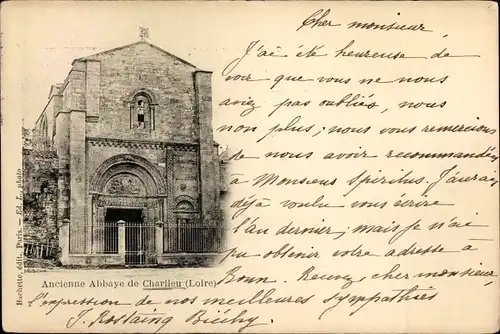 Cher monsieur,
J'ai été heureuse de
voir que vous ne nous
aviez pas oubliés, nous
non plus; nous vous remercions
de nous avoir recommandés
à Monsieur Spiritus. J'aurais
déjà voulu vous écrire
l'an dernier; mais je n'ai
pu obtenir votre adresse à
Bonn. Recevez, cher monsieur,
l'expression de nos meilleures sympathies
J. Rostaing Biéchy.
Ancienne Abbaye de Charlieu (Loire)
Hachette, édit. Paris. - Ed. L., photo